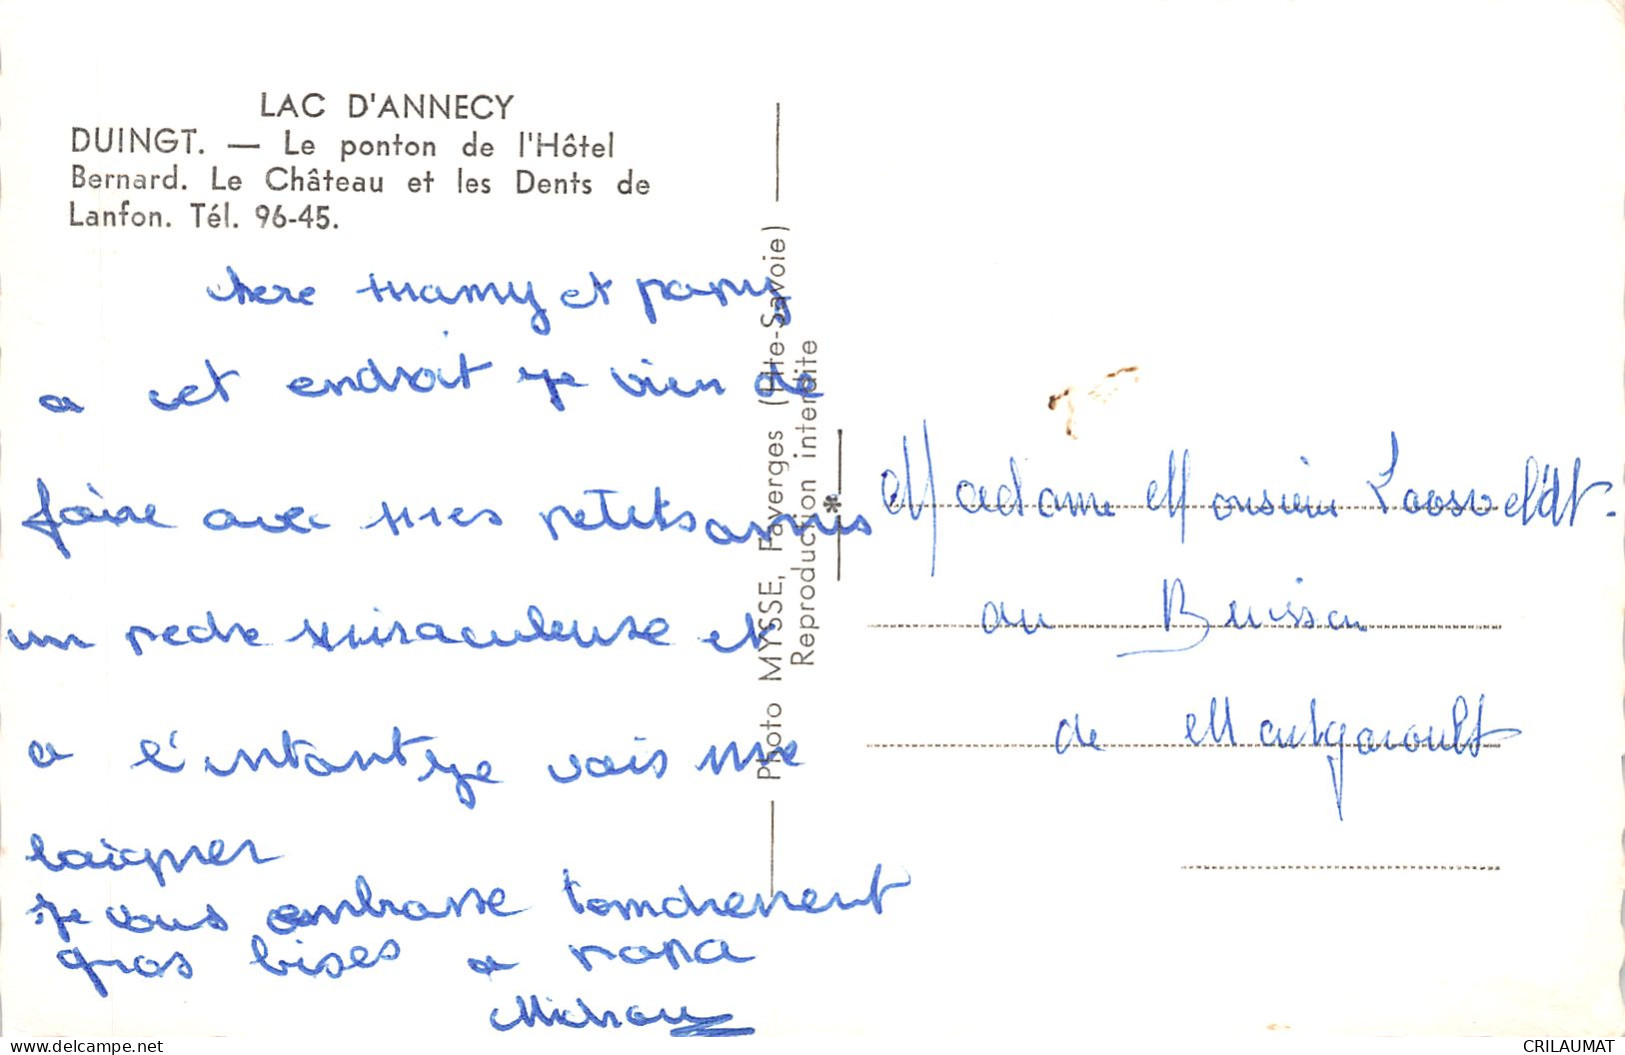 LAC D'ANNECY
DUINGT. — Le ponton de l'Hôtel
Bernard. Le Château et les Dents de
Lanfon. Tél. 96-45.
chere mamy et papy
a cet endroit je vien de
faire avec mes petits amis
un peche miraculeuse et
a l'intant je vais me
baigner
je vous embrasse tendrement
gros bises a papa
Photo MYSSE, Faverges (Hte-Savoie)
Reproduction interdite
Madame Monsieur Loosveldt.
au Buisson
de
delcampe.net
CRILAUMAT